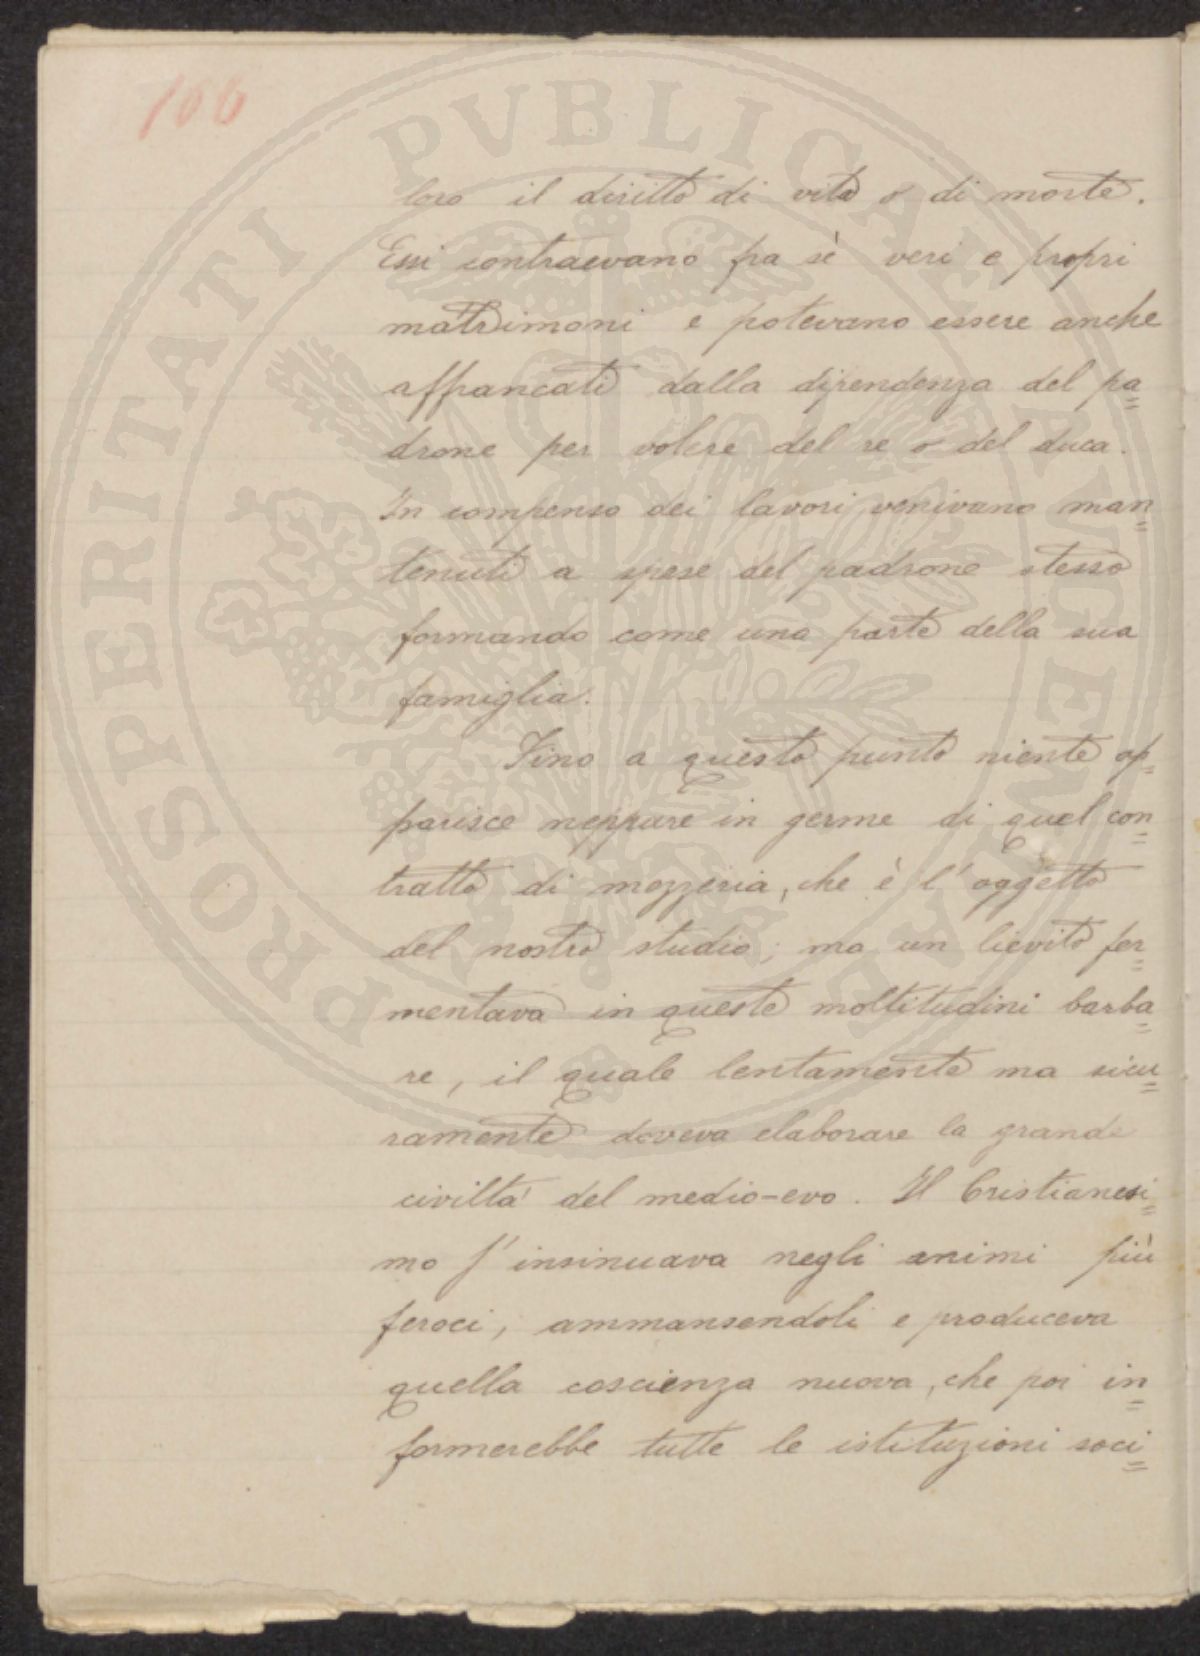 166
loro il diritto di vita o di morte.
Essi contraevano fra sè veri e propri
matrimoni e potevano essere anche
affrancati dalla dipendenza del pa=
drone per volere del re o del duca.
In compenso dei lavori venivano man=
tenuti a spese del padrone stesso
formando come una parte della sua
famiglia.
Fino a questo punto niente ap=
parisce neppure in germe di quel con=
tratto di mezzeria, che è l'oggetto
del nostro studio; ma un lievito fer=
mentava in queste moltitudini barba=
re, il quale lentamente ma sicu=
ramente doveva elaborare la grande
civiltà del medio-evo. Il Cristianesi=
mo s'insinuava negli animi più
feroci, ammansendoli e produceva
quella coscienza nuova, che poi in=
formerebbe tutte le istituzioni soci=
PROSPERITATI PVBLICAE AVGENDAE